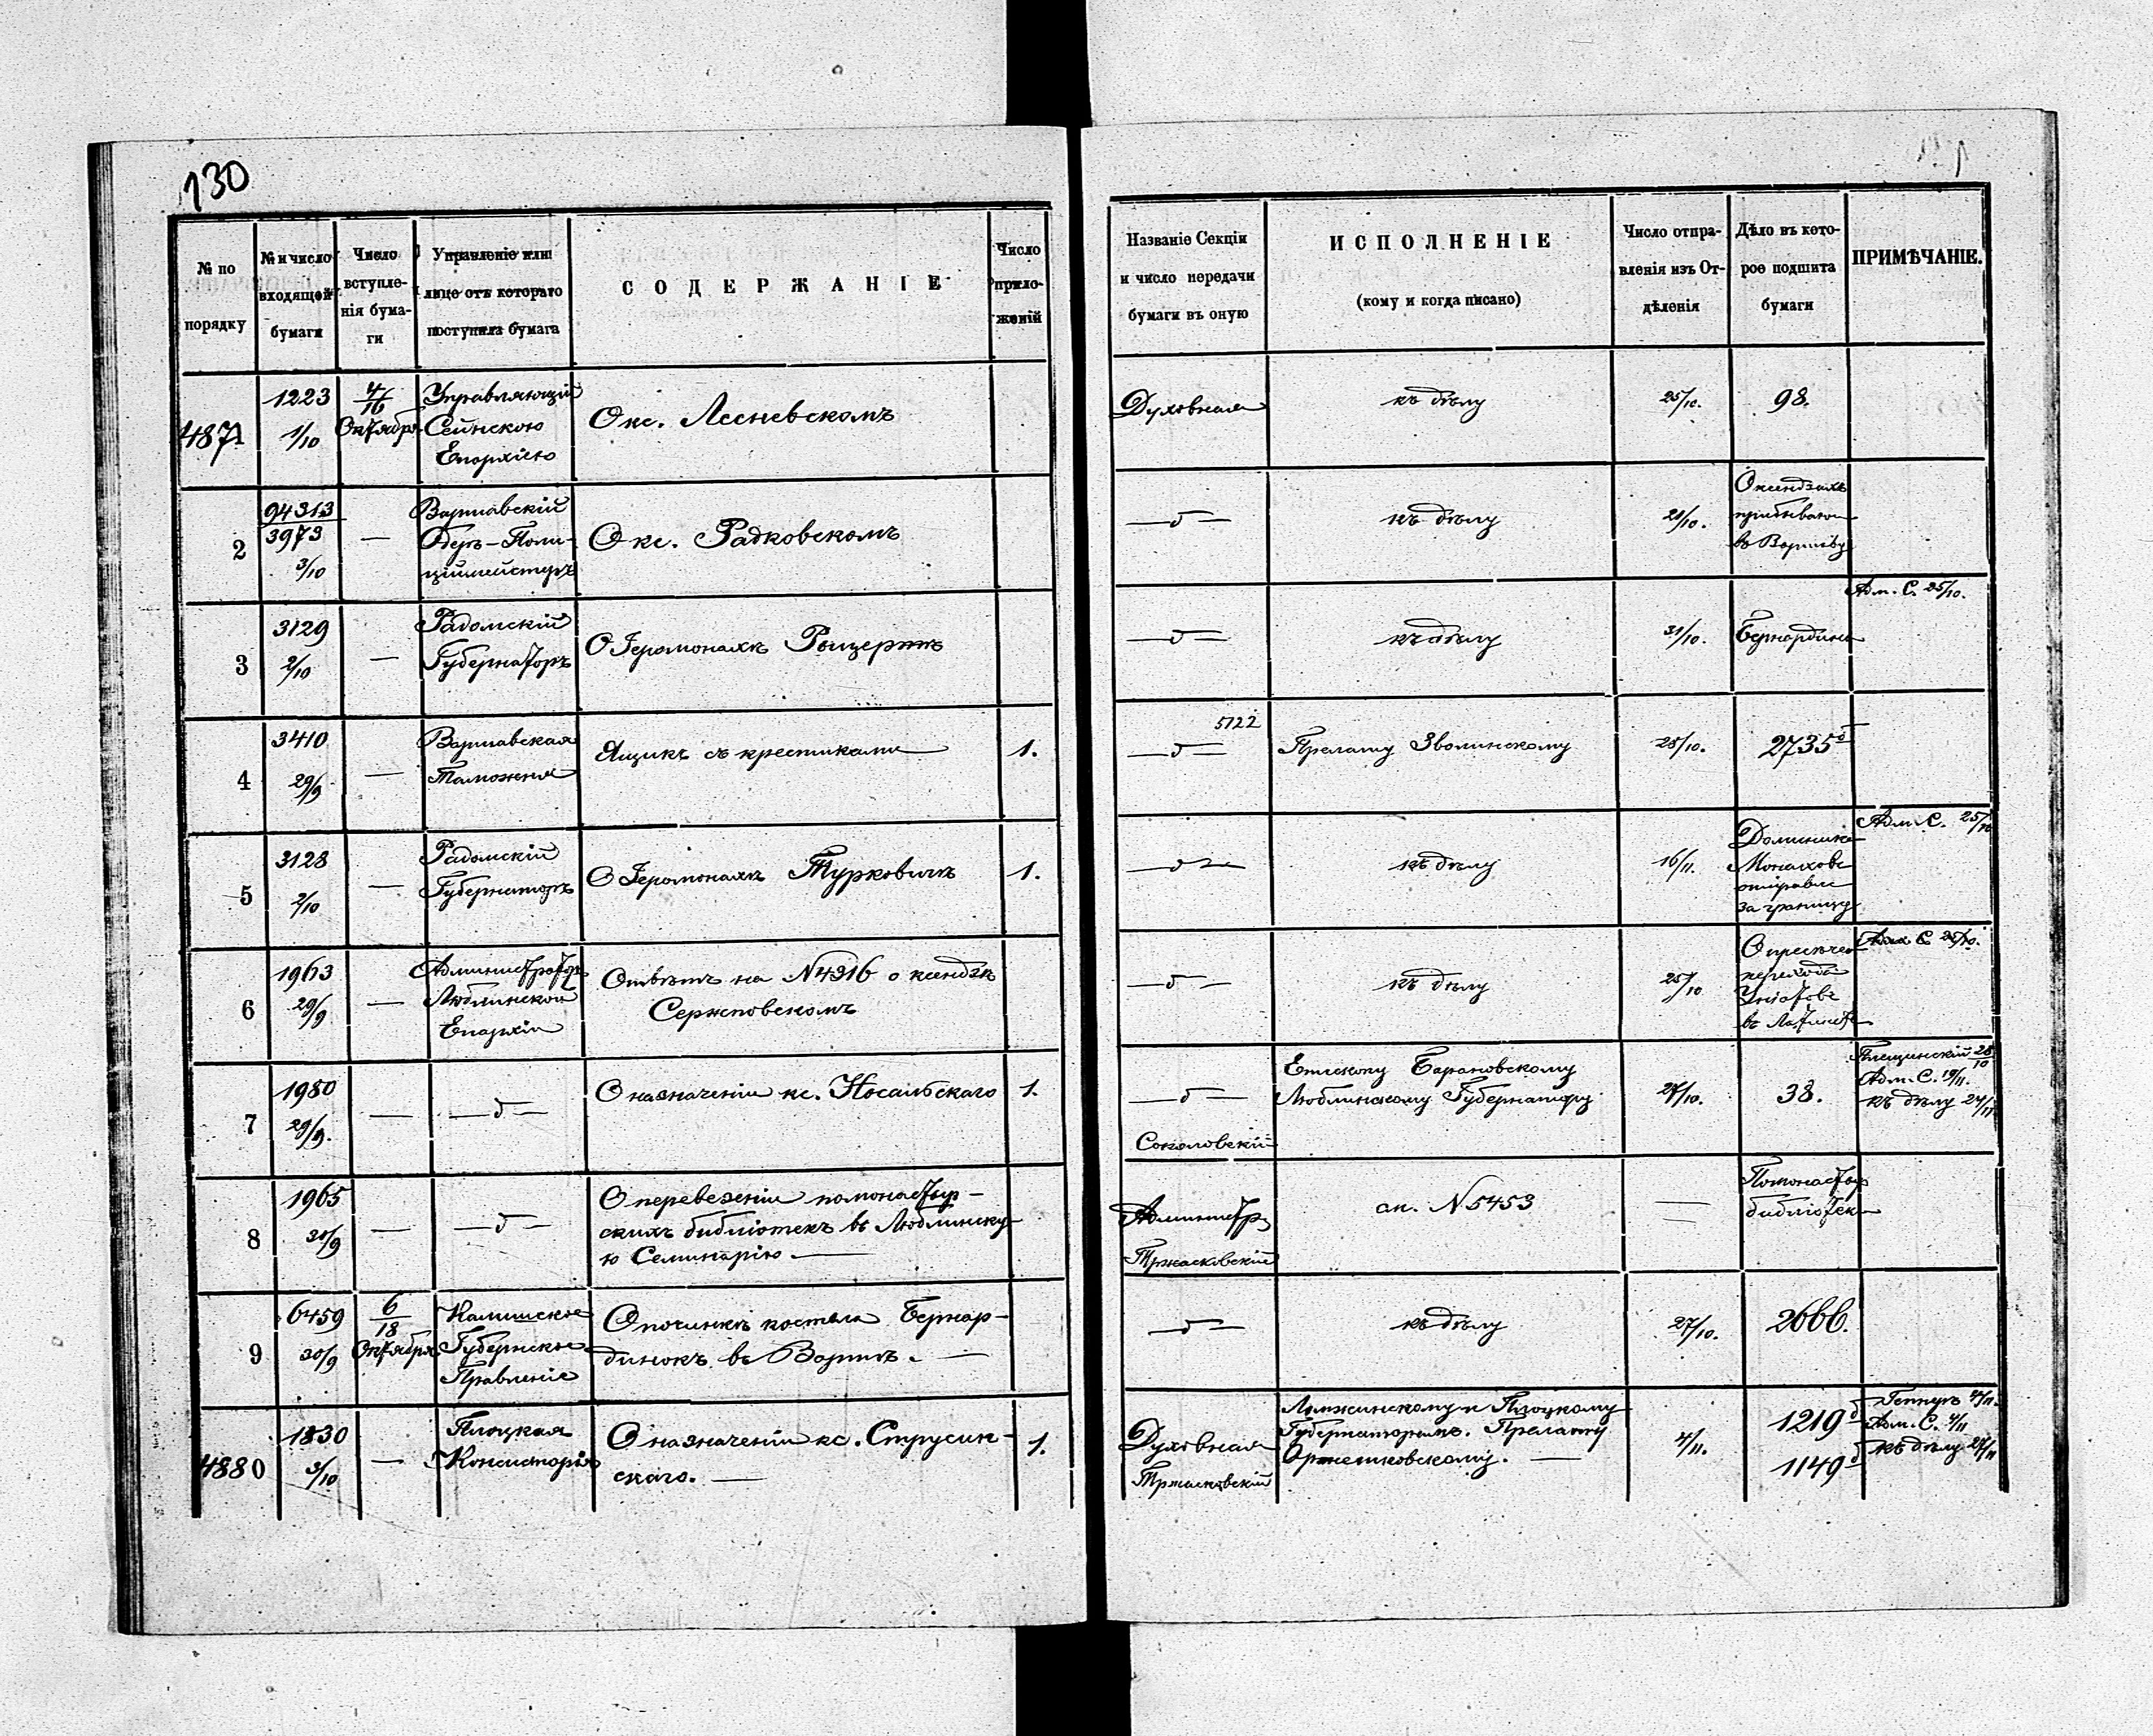 130
№ по порядку
№ и число входящей бумаги
Число вступле-
нія бума-
ги
Управленіе или
лице отъ котораго
поступила бумага
СОДЕРЖАНІЕ
Число
прило-
женій
Названіе Секціи
и число передачи
бумаги въ оную
ИСПОЛНЕНІЕ
(кому и когда писано)
Число отпра-
вленія изъ От-
дѣленія
Дѣло въ кото-
рое подшита
бумаги
ПРИМѢЧАНІЕ.
4871
1223
1/10
4/16
Октября
Управляющій
Сейнскою
Епархіею
О кс. Лесневскомъ
Духовная
къ дѣлу
25/10.
98.
2
94313
3973
3/10
—
Варшавскій
Оберъ-Поли-
ційместеръ
О кс. Радковскомъ
— д —
къ дѣлу
21/10.
О ксендзахъ
в Варшаву
3
3129
2/10
—
Радомскій
Губернаторъ
О Іеромонахѣ Рыцертѣ
— д —
къ дѣлу
31/10.
Бернардины
Адм. С. 25/10.
4
3410
29/9
—
Варшавская
Таможня
Ящикъ съ крестиками
1.
5122
— д —
Прелату Зволинскому
28/10.
2735
5
3128
2/10
—
Радомскій
Губернаторъ
О Іеромонахѣ Турковичѣ
1.
— д —
къ дѣлу
16/11.
Монаховъ
отправле
за границу
Адм. С. 25/10
6
1963
29/9
—
Администраторъ
Люблинской
Епархіи
Отвѣтъ на N 4316 о ксендзѣ
Сержповскомъ
— д —
къ дѣлу
25/10
О пресѣчен
перехода
Уніатовъ
въ Латинст
Адм. С. 25/10.
7
1980
29/9.
—
— д —
О назначеніи кс. Носальскаго
1.
— д —
Соколовскій
Епископу Барановскому
Люблинскому Губернатору
27/10.
38.
28/10
Адм. С. 19/11.
къ дѣлу 24/11
8
1965
30/9
—
— д —
О перевезеніи помонастыр-
скихъ библіотекъ въ Люблинску-
ю Семинарію. —
Администр.
Тржасковскій
сп. N 5453
—
Помонастыр
библіотек
9
6459
30/9
6/18
Октября
Калишское
Губернское
Правленіе
О починкѣ костела Бернар-
динокъ въ Вартѣ. —
— д —
къ дѣлу
27/10.
2666.
4880
1830
3/10
—
Плоцкая
Консисторія
О назначеніи кс. Струсин-
скаго. —
1.
Духовная
Тржасковскій
Ломжинскому и Плоцкому
Губернаторамъ. Прелату
Оржешковскому. —
4/11.
1219
1149
Адм. С. 4/11
къ дѣлу 27/11